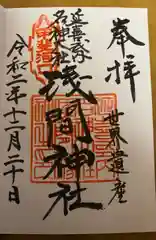 奉拝
世界遺産
延喜式
名神大社
淺間神社
令和二年十二月二十日